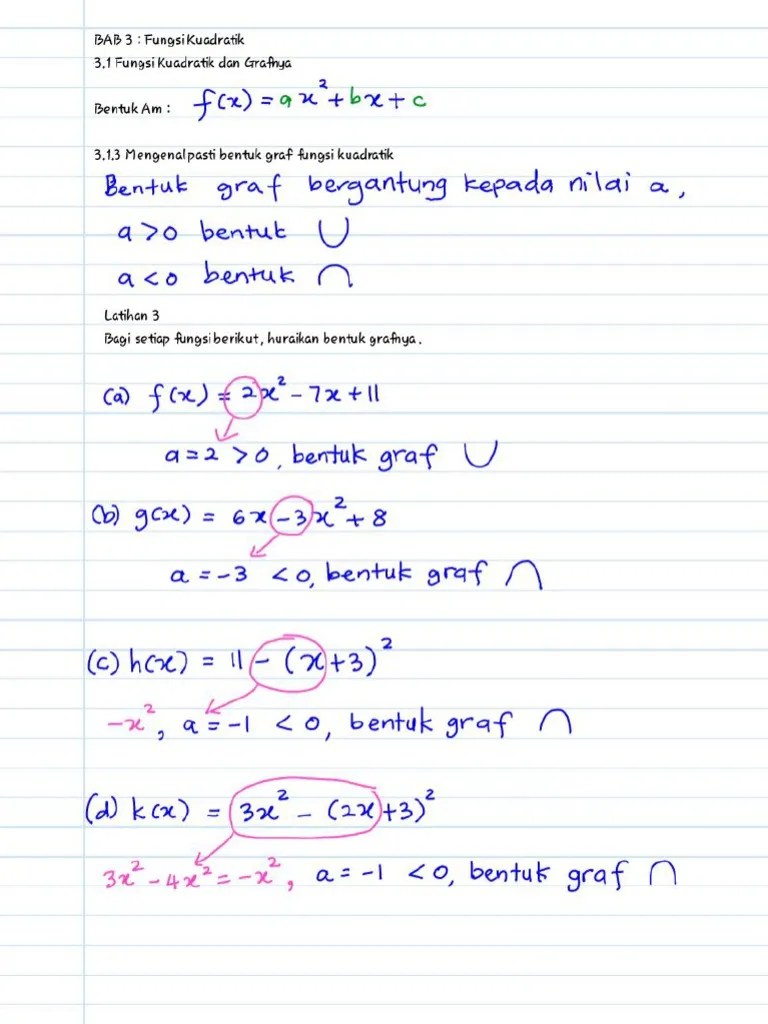 BAB 3 : Fungsi Kuadratik
3.1 Fungsi Kuadratik dan Grafnya
Bentuk Am : f(x) = ax² + bx + c
3.1.3 Mengenalpasti bentuk graf fungsi kuadratik
Bentuk graf bergantung kepada nilai a,
a > 0 bentuk ∪
a < 0 bentuk ∩
Latihan 3
Bagi setiap fungsi berikut, huraikan bentuk grafnya.
(a) f(x) = 2x² - 7x + 11
a = 2 > 0, bentuk graf ∪
(b) g(x) = 6x - 3x² + 8
a = -3 < 0, bentuk graf ∩
(c) h(x) = 11 - (x + 3)²
-x², a = -1 < 0, bentuk graf ∩
(d) k(x) = 3x² - (2x + 3)²
3x² - 4x² = -x², a = -1 < 0, bentuk graf ∩